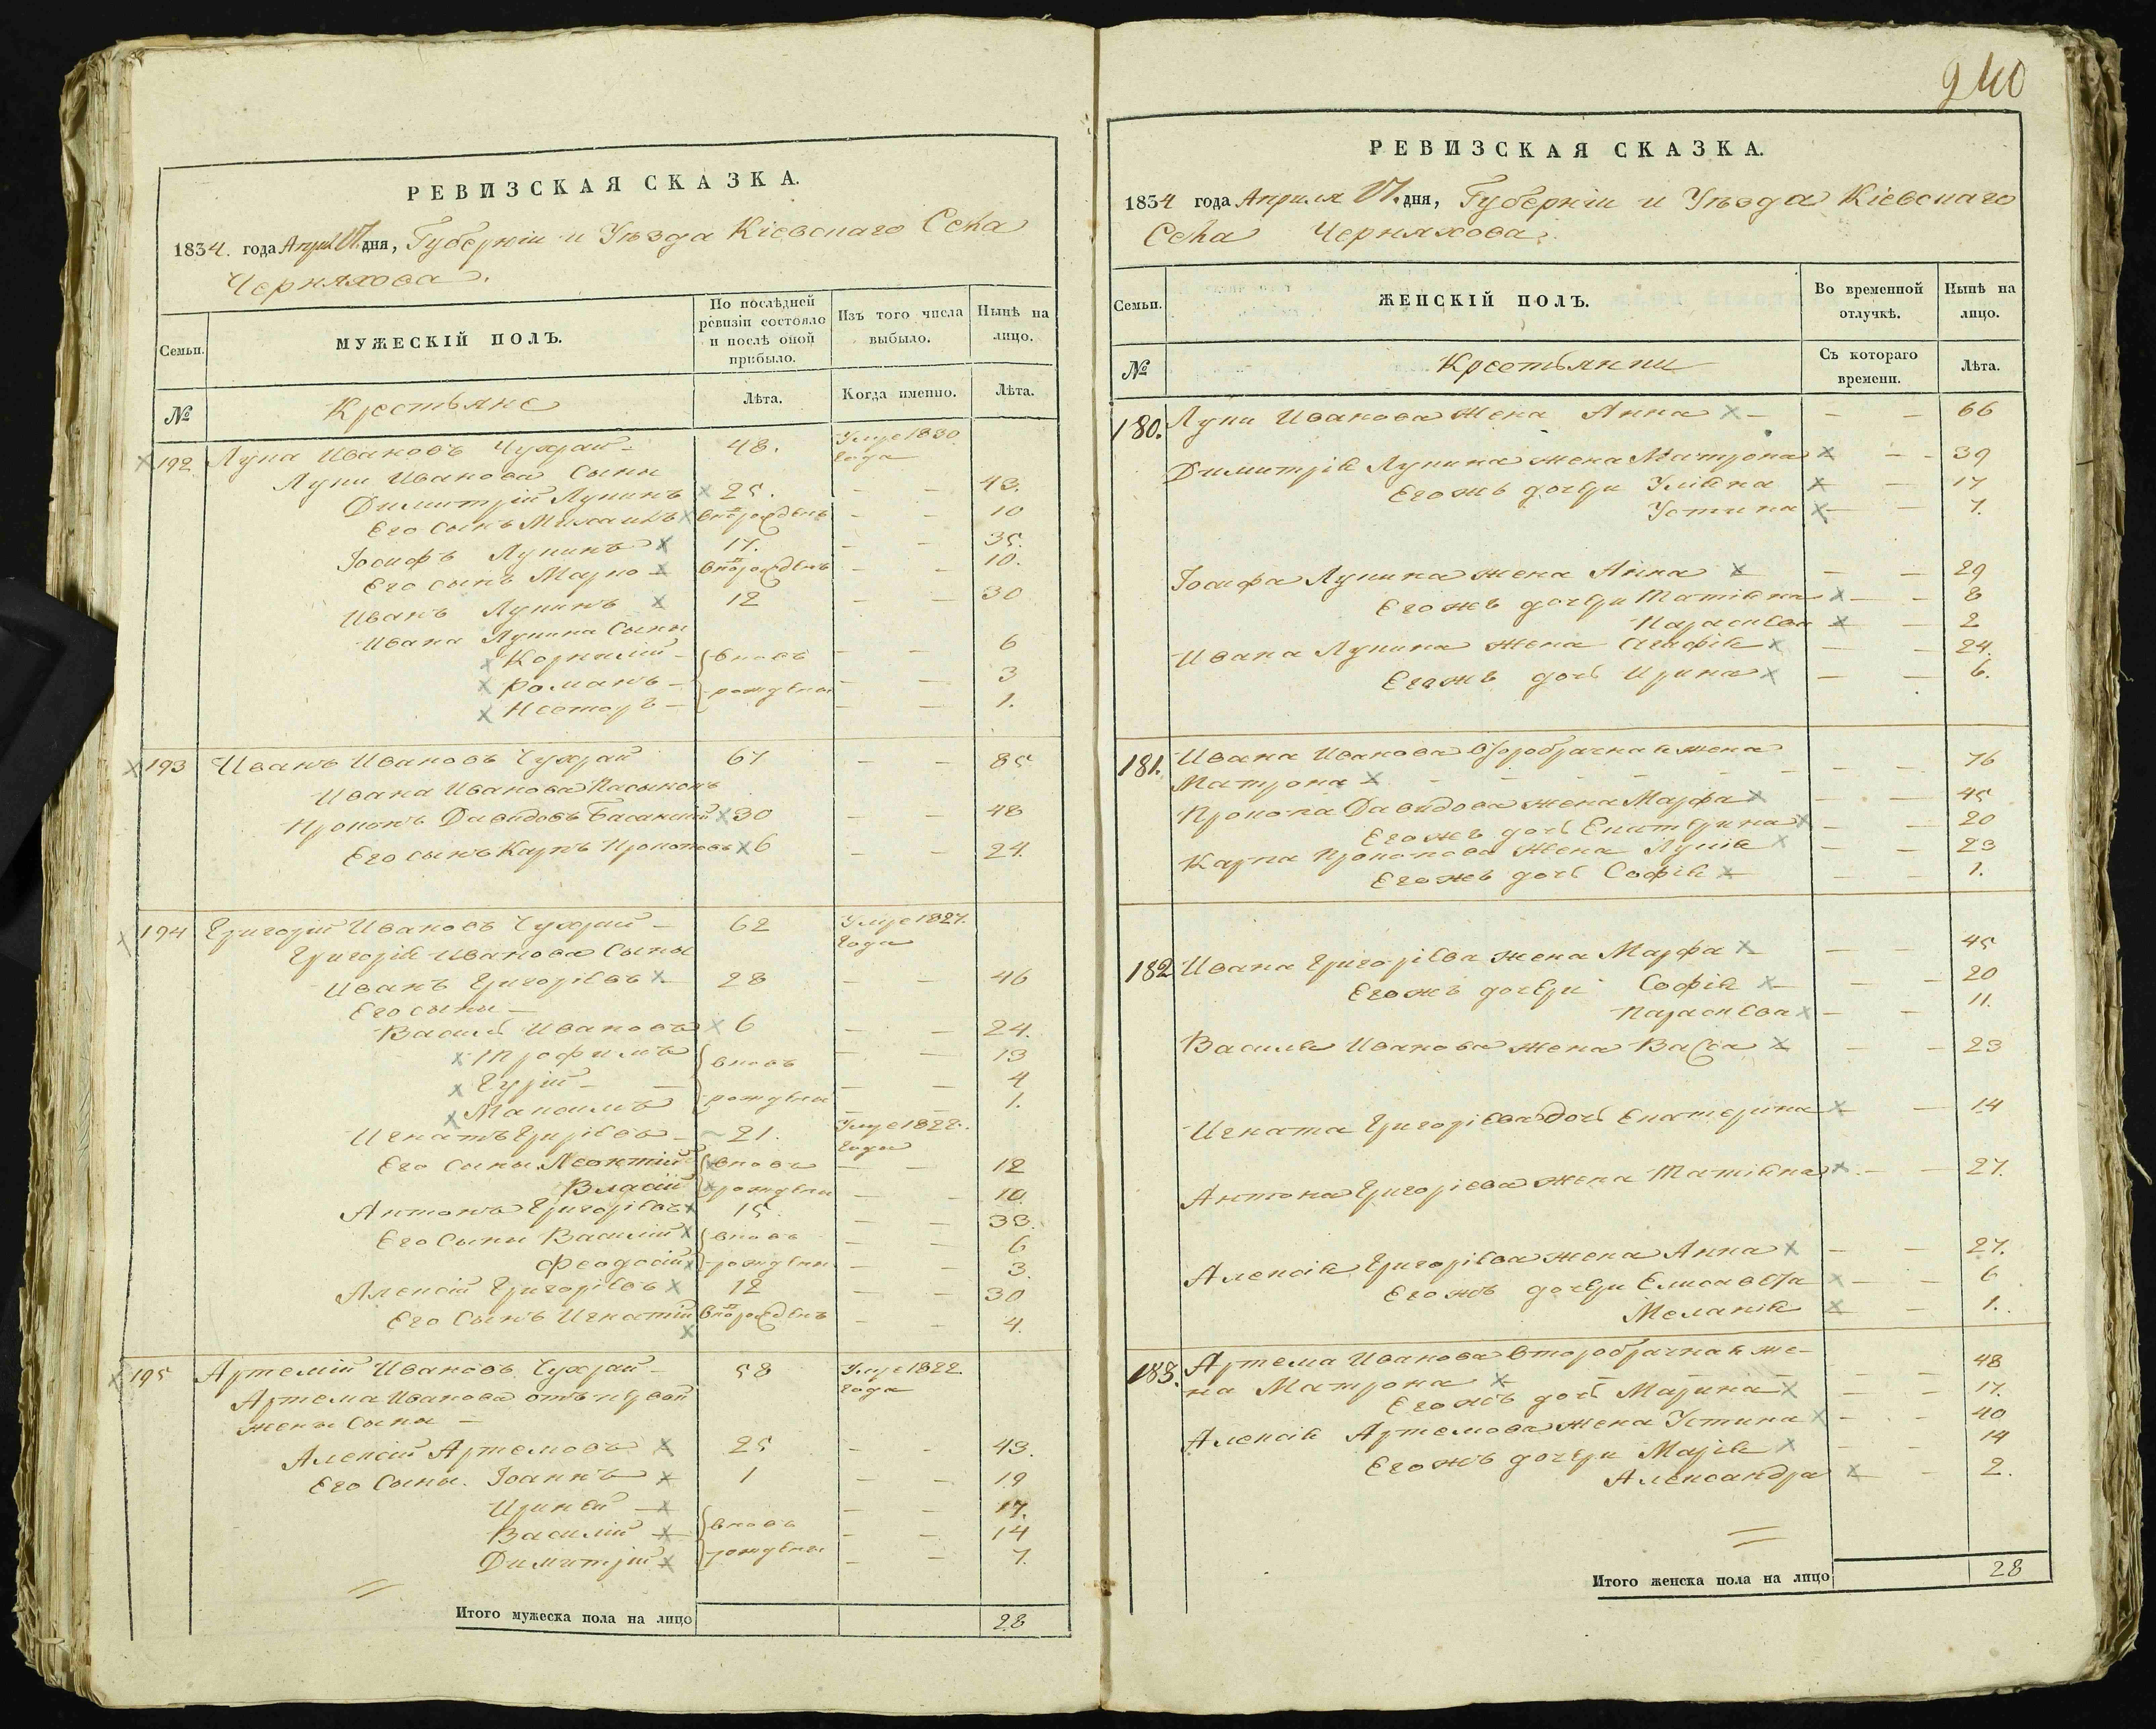 РЕВИЗСКАЯ СКАЗКА.
1834. года Апреля 17. дня, Губерніи и Уѣзда Кіевскаго Села
Черняхова.
Семьи.
МУЖЕСКІЙ ПОЛЪ.
По послѣдней ревизіи состояло и послѣ оной прибыло.
Изъ того числа выбыло.
Нынѣ на лицо.
№
Крестьяне
Лѣта.
Когда именно.
Лѣта.
192 Лупа Ивановъ Чухрай 48. Умре 1830 года
Лупы Иванова Сыны
Димитрій Лупинъ 25. — — 43.
Его Сынъ Михаилъ вновь рожденъ — — 10
Іосифъ Лупинъ 17. — — 35.
Его сынъ Марко вновь рожденъ — — 10.
Иванъ Лупинъ 12 — — 30
Ивана Лупина Сыны
Корнилій — вновь — — 6
Романъ — рождены — — 3
Несторъ — — — 1.
193 Иванъ Ивановъ Чухрай 67 — — 85
Ивана Иванова Пасынокъ
Прокопъ Давидовъ 30 — — 48
Его сынъ Карпъ Прокоповъ 6 — — 24.
194 Григорій Ивановъ Чухрай — 62 Умре 1827. года
Григорія Иванова Сыны
Иванъ Григоріевъ 28 — — 46
Его сыны —
Василій Ивановъ 6 — — 24.
Трофимъ вновь — — 13
Гурій — — рождены — — 4
Максимъ — — 1.
Игнатъ Григоріевъ — 21. Умре 1822. года
Его сыны Леонтій вновь — — 12
Власій рождены — — 10
Антонъ Григоріевъ 15. — — 33.
Его Сыны Василій вновь — — 6
Феодосій рождены — — 3.
Алексій Григоріевъ 12 — — 30
Его Сынъ Игнатій вновь рожденъ — — 4.
195 Артемій Ивановъ Чухрай 58 Умре 1822 года
Артема Иванова отъ первой
жены Сыны —
Алексій Артемовъ 25 — — 43.
Его Сыны. Іоаннъ 1 — — 19
Ириней — — — 17.
Василій вновь — — 14
Димитрій рождены — — 7.
Итого мужеска пола на лицо 28
240
РЕВИЗСКАЯ СКАЗКА.
1834 года Апреля 17. дня, Губерніи и Уѣзда Кіевскаго
Села Черняхова.
Семьи.
ЖЕНСКІЙ ПОЛЪ.
Во временной отлучкѣ.
Нынѣ на лицо.
№
Крестьянки
Съ котораго времени.
Лѣта.
180. Лупы Иванова жена Анна — — — 66
Димитрія Лупина жена Матрона — — 39
Его жъ дочери Уліяна — 17
Устина — — 7.
Іосифа Лупина жена Анна — — 29
Его жъ дочери Татіяна — — 8
Параскева — 2
Ивана Лупина жена Агафія — — 24.
Его жъ дочь Ирина — — 6.
181. Ивана Иванова второбрачная жена
Матрона — — 76
Прокопа Давидова жена Марфа — — 45
Его жъ дочь Екатерина — — 20
Карпа Прокопова жена Лукія — — 23
Его жъ дочь Софія — — 1.
182 Ивана Григоріева жена Марфа — — 45
Его жъ дочери Софія — — 20
Параскева — — 11.
Василія Иванова жена Васса — — 23
Игната Григоріева дочь Екатерина — 14
Антона Григоріева жена Татіяна — — 27.
Алексія Григоріева жена Анна — — 27.
Его жъ дочери Елисавета — — 6
Меланія — 1.
183. Артема Иванова второбрачная же-
на Матрона — — 48
Его жъ дочь Марина — — 17.
Алексія Артемова жена Устина — — 40
Его жъ дочери Марія — — 14
Александра — 2.
Итого женска пола на лицо 28